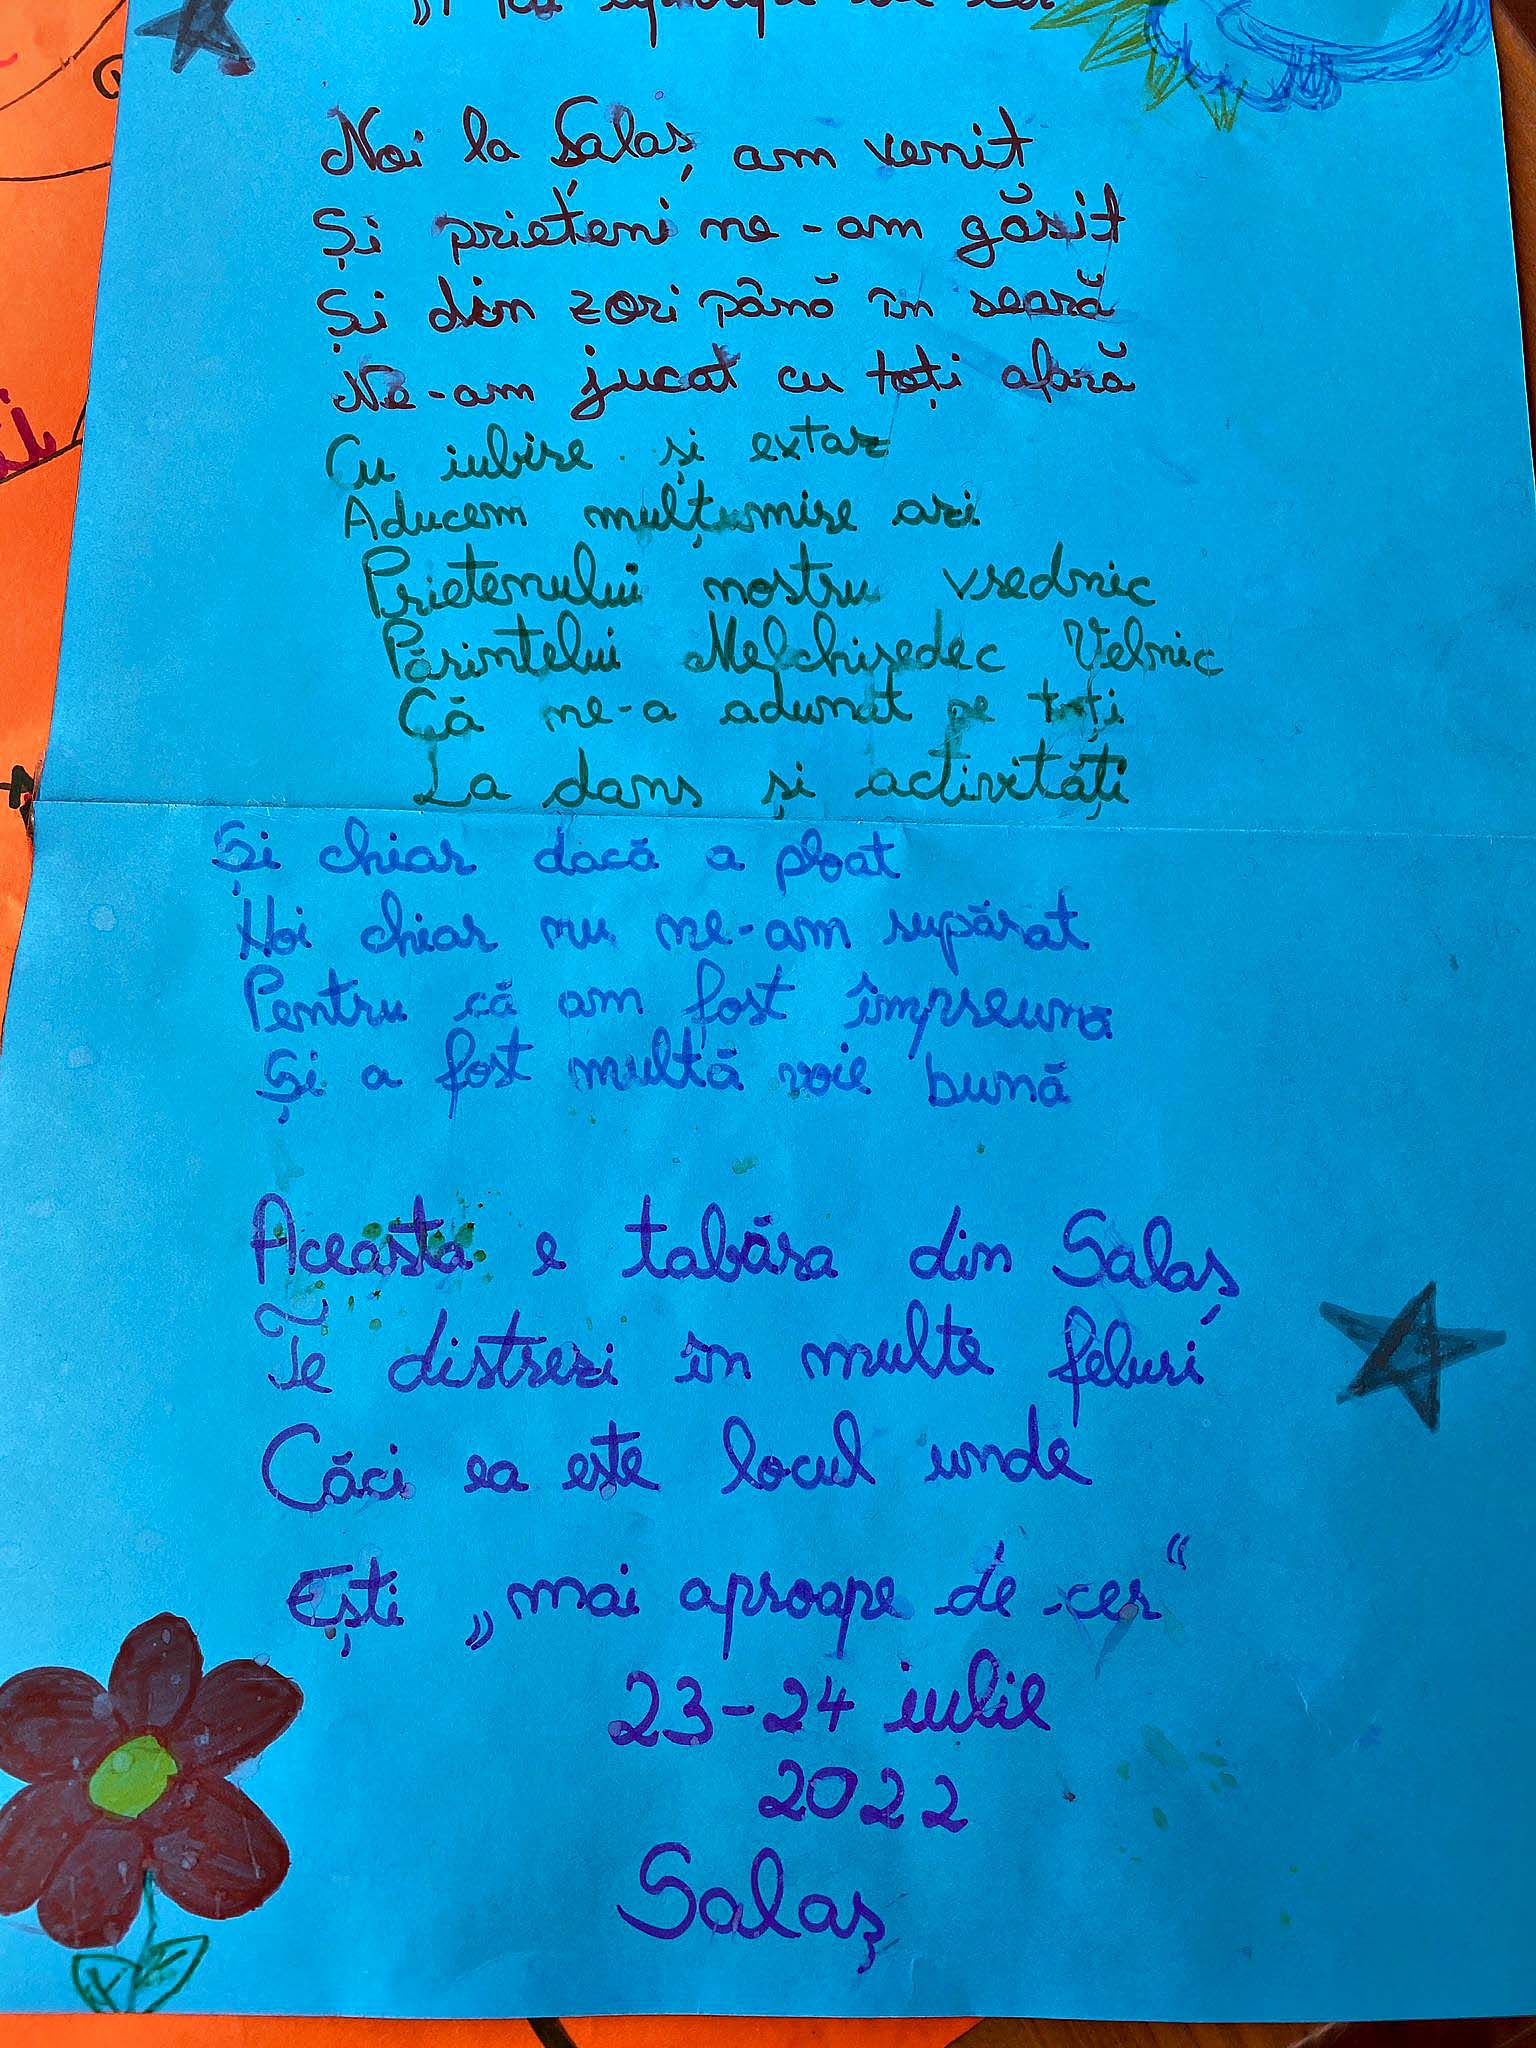 Noi la Sălaș am venit
Și prieteni ne-am găsit
Și din zori până în seară
Ne-am jucat cu toți afară
Cu iubire și extaz
Aducem mulțumire azi
Prietenului nostru vrednic
Părintelui Melchisedec Velnic
Că ne-a adunat pe toți
La dans și activități
Și chiar dacă a ploat
Noi chiar nu ne-am supărat
Pentru că am fost împreună
Și a fost multă voie bună
Aceasta e tabăra din Salaș
Te distrezi în multe feluri
Căci ea este locul unde
Ești „mai aproape de cer“
23-24 iulie
2022
Salaș